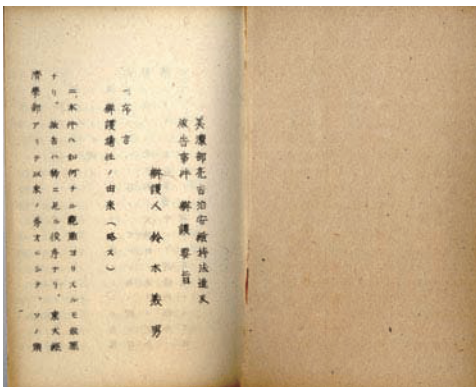 美濃部亮吉治安維持法違反
被告事件 辯護要旨
辯護人 鈴木義男
一、序言
辯護 ノ由来(略ス)
二、本件ハ如何ナル ヨリスルモ無罪
ナリ。被告ハ稀ニ見ル俊秀ナリ。東大經
濟學部アリテ以来ノ秀才ニシテ、ソノ頭